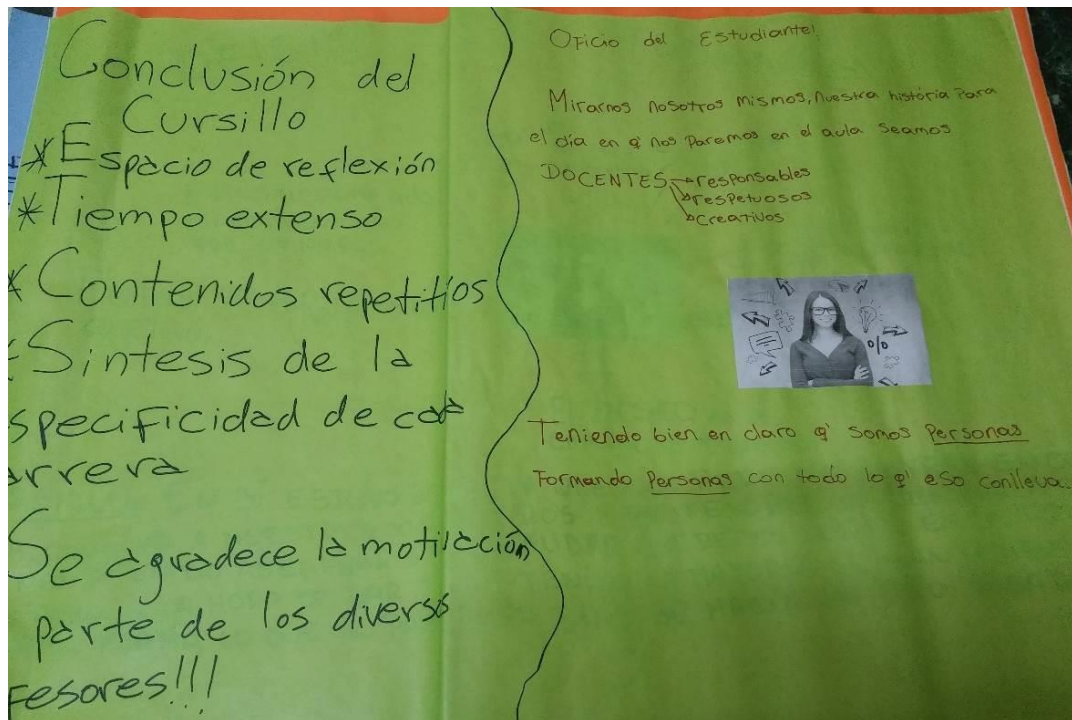 Conclusión del
Cursillo
*Espacio de reflexión
*Tiempo extenso
*Contenidos repetitíos
Síntesis de la
specificidad de cada
arrera
Se agradece la motilación
parte de los diversos
fesores!!!
Oficio del Estudiante!
Mirarnos nosotros mismos, nuestra história para
el día en q' nos paremos en el aula seamos
DOCENTES → responsables
→ respetuosos
→ creativos
%
Teniendo bien en claro q' somos Personas
Formando Personas con todo lo q' eso conlleva..